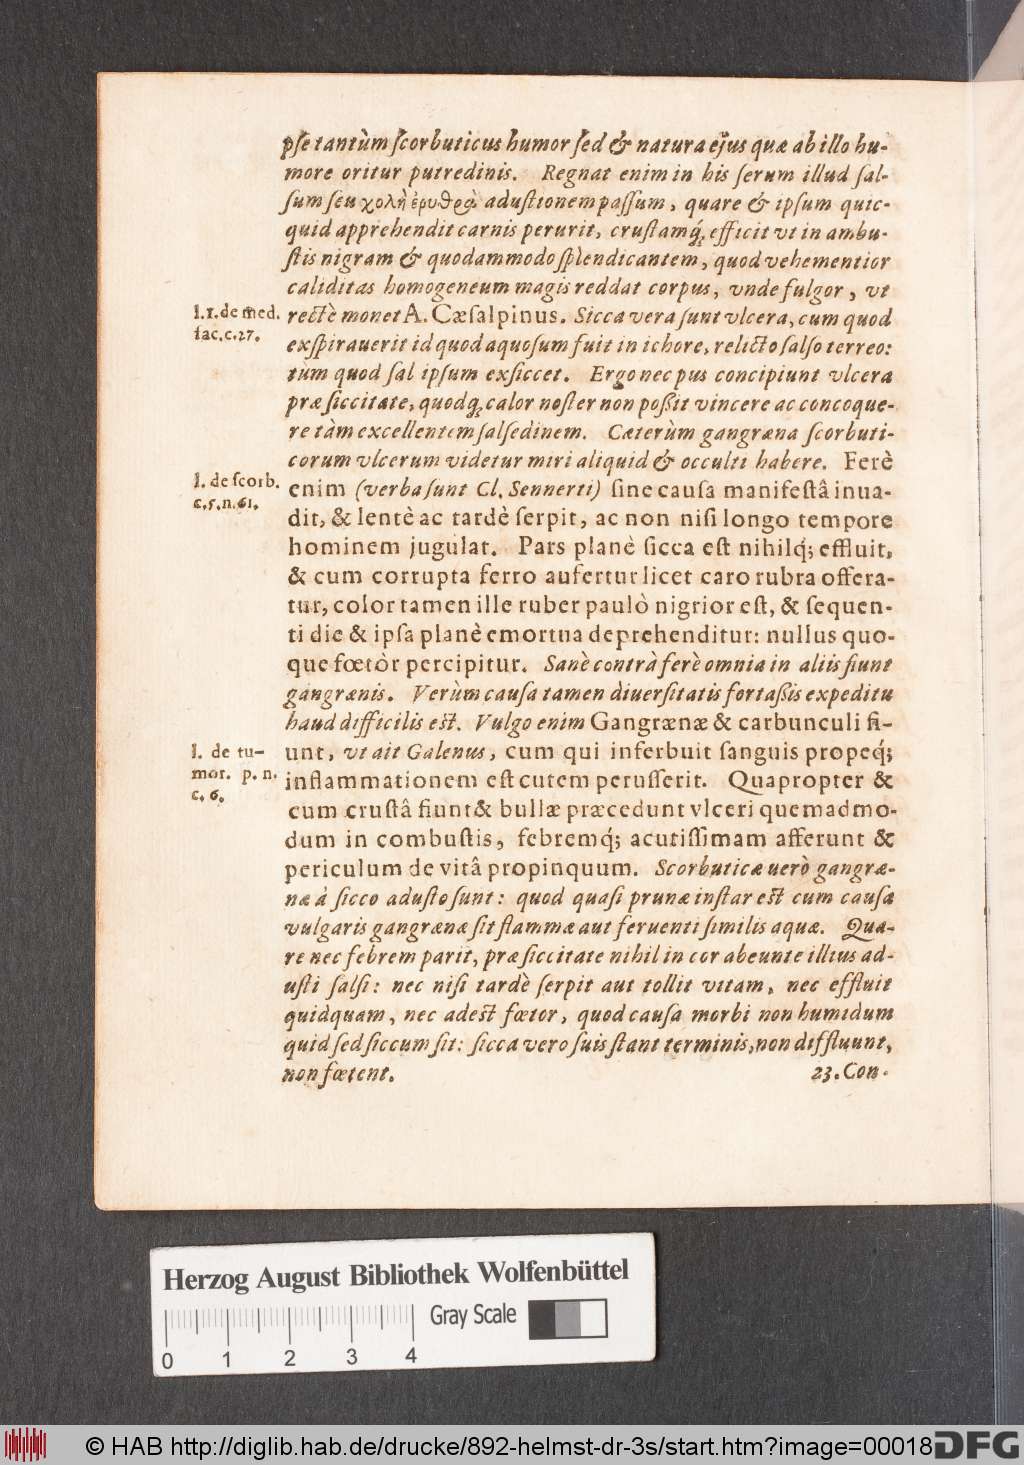 pſe tantùm ſcorbuticus humor ſed & natura ejus quæ ab illo hu-
more oritur putredinis. Regnat enim in his ſerum illud ſal-
ſum ſeu χολὴ ἐρυθρὰ aduſtionem paſſum, quare & ipſum quic-
quid apprehendit carnis perurit, cruſtamq́; efficit vt in ambu-
ſtis nigram & quodammodo ſplendicantem, quod vehementior
caliditas homogeneum magis reddat corpus, vnde fulgor, vt
l.1. de med.
fac.c.27.
rectè monet A. Cæſalpinus. Sicca vera ſunt vlcera, cum quod
exſpirauerit id quod aquoſum fuit in ichore, relicto ſalſo terreo:
tùm quod ſal ipſum exſiccet. Ergo nec pus concipiunt vlcera
præ ſiccitate, quodq́; calor noſter non poßit vincere ac concoque-
re tàm excellentem ſalſedinem. Cæterùm gangræna ſcorbuti-
corum vlcerum videtur miri aliquid & occulti habere. Ferè
l. de ſcorb.
c.5.n.61.
enim (verba ſunt Cl. Sennerti) ſine cauſa manifeſtâ inua-
dit, & lentè ac tardè ſerpit, ac non niſi longo tempore
hominem jugulat. Pars planè ſicca eſt nihilq́; effluit,
& cum corrupta ferro aufertur licet caro rubra offera-
tur, color tamen ille ruber paulò nigrior eſt, & ſequen-
ti die & ipſa planè emortua deprehenditur: nullus quo-
que fœtòr percipitur. Sanè contrà ferè omnia in aliis fiunt
gangrænis. Verùm cauſa tamen diuerſitatis fortaßis expeditu
haud difficilis eſt. Vulgo enim Gangrænæ & carbunculi fi-
l. de tu-
mor. p. n.
c. 6.
unt, vt ait Galenus, cum qui inferbuit ſanguis propeq́;
inflammationem eſt cutem peruſſerit. Quapropter &
cum cruſtâ fiunt & bullæ præcedunt vlceri quemadmo-
dum in combuſtis, febremq́; acutiſſimam afferunt &
periculum de vitâ propinquum. Scorbuticæ uerò gangræ-
næ à ſicco aduſto ſunt: quod quaſi prunæ inſtar eſt cum cauſa
vulgaris gangrænæ ſit flammæ aut feruenti ſimilis aquæ. Qua-
re nec febrem parit, præ ſiccitate nihil in cor abeunte illius ad-
uſti ſalſi: nec niſi tardè ſerpit aut tollit vitam, nec effluit
quidquam, nec adeſt fœtor, quod cauſa morbi non humidum
quid ſed ſiccum ſit: ſicca vero ſuis ſtant terminis, non diffluunt,
non fœtent.
23. Con-
Herzog August Bibliothek Wolfenbüttel
Gray Scale
0 1 2 3 4
© HAB http://diglib.hab.de/drucke/892-helmst-dr-3s/start.htm?image=00018
DFG